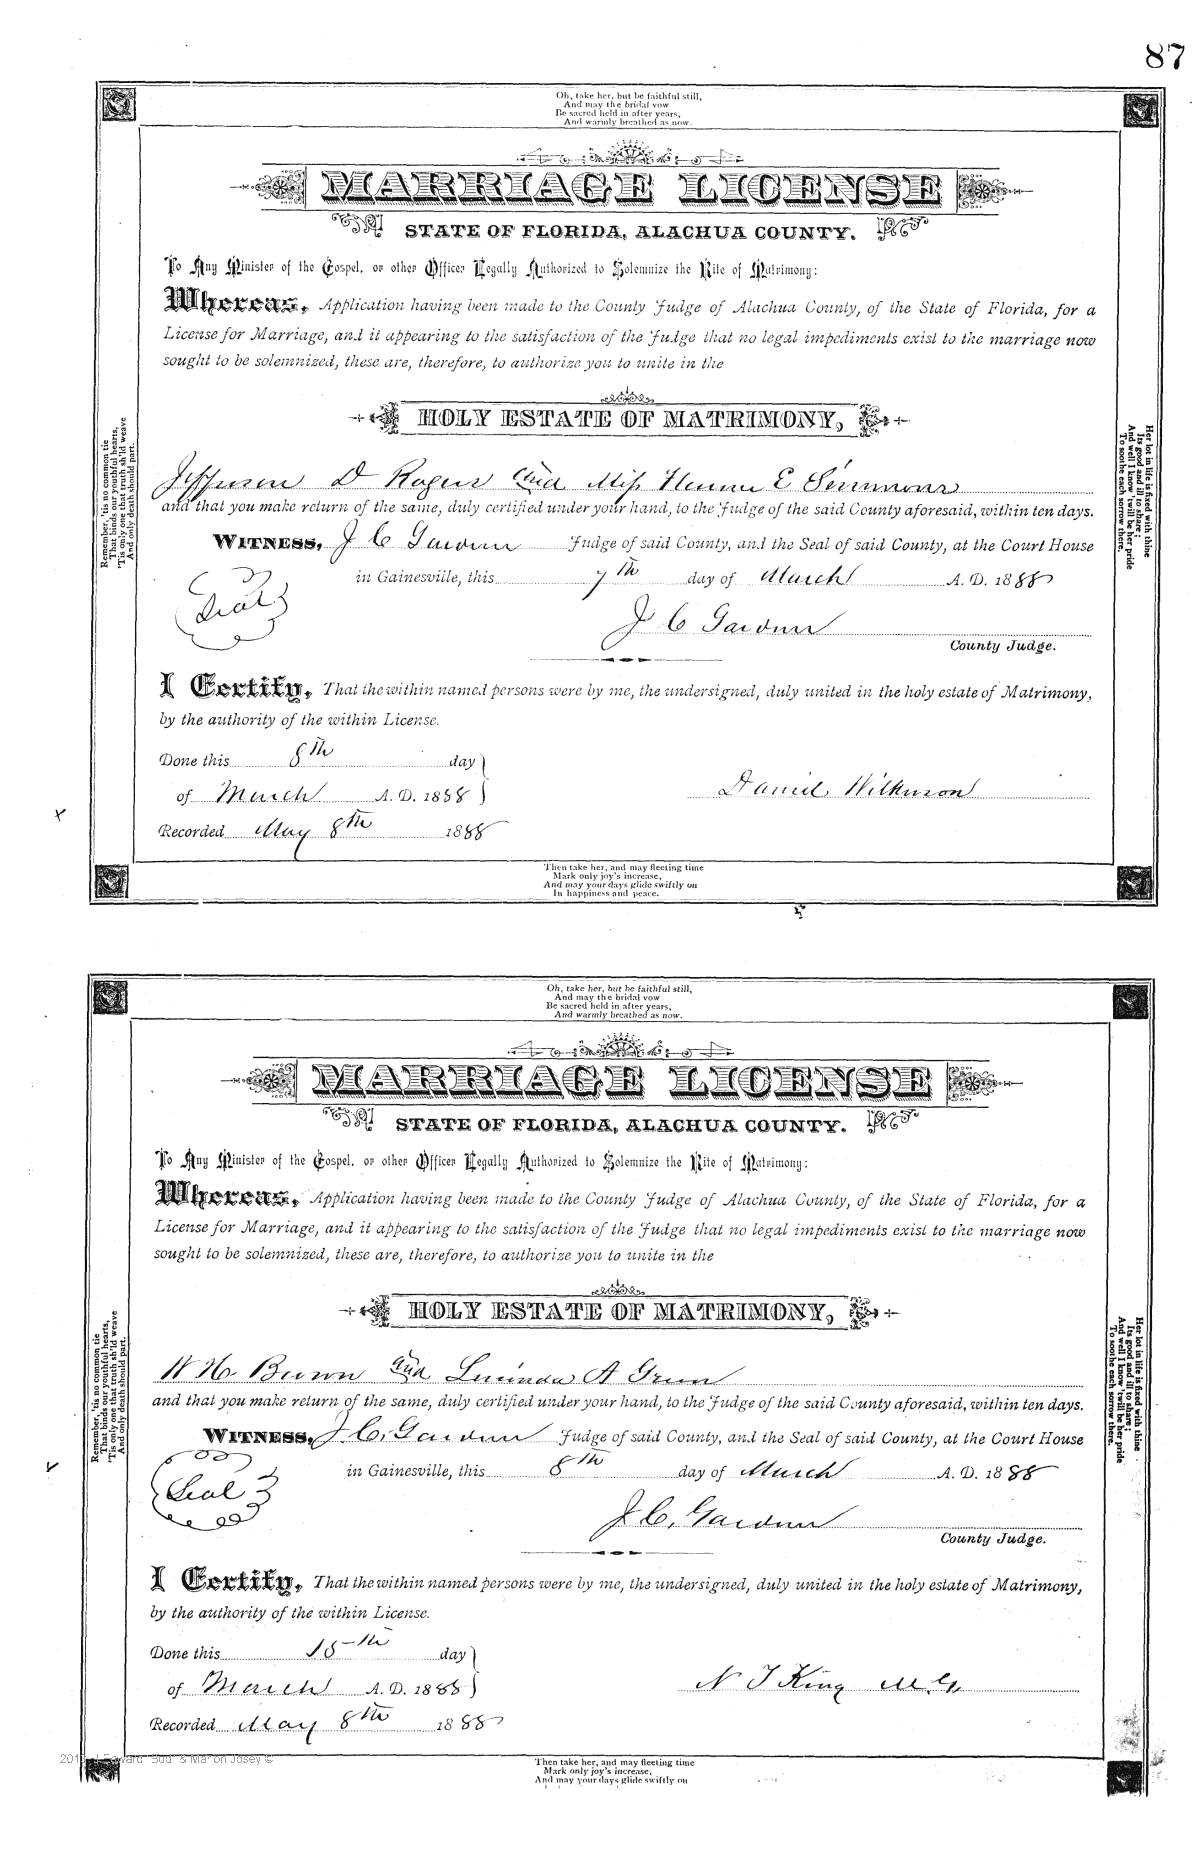 87
Oh, take her, but be faithful still,
And may the bridal vow
Be sacred held in after years,
And warmly breathed as now.
MARRIAGE LICENSE
STATE OF FLORIDA, ALACHUA COUNTY.
To Any Minister of the Gospel, or other Officer Legally Authorized to Solemnize the Rite of Matrimony:
Whereas, Application having been made to the County Judge of Alachua County, of the State of Florida, for a
License for Marriage, and it appearing to the satisfaction of the Judge that no legal impediments exist to the marriage now
sought to be solemnized, these are, therefore, to authorize you to unite in the
HOLY ESTATE OF MATRIMONY,
Jefferson D Rogers and Miss E Simmons
and that you make return of the same, duly certified under your hand, to the Judge of the said County aforesaid, within ten days.
WITNESS, J C Gardner Judge of said County, and the Seal of said County, at the Court House
in Gainesville, this 7th day of March A. D. 1888
Seal
J C Gardner
County Judge.
I Certify, That the within named persons were by me, the undersigned, duly united in the holy estate of Matrimony,
by the authority of the within License.
Done this 8th day
of March A. D. 1888
Daniel Wilkinson
Recorded May 8th 1888
Then take her, and may fleeting time
Mark only joy's increase,
And may your days glide swiftly on
In happiness and peace.
Remember, 'tis no common tie
That binds our youthful hearts,
'Tis only one that truth sh'ld weave
And only death should part.
Her lot in life is fixed with thine
Its good and ill to share;
And well I know 'twill be her pride
To soothe each sorrow there.
Oh, take her, but be faithful still,
And may the bridal vow
Be sacred held in after years,
And warmly breathed as now.
MARRIAGE LICENSE
STATE OF FLORIDA, ALACHUA COUNTY.
To Any Minister of the Gospel, or other Officer Legally Authorized to Solemnize the Rite of Matrimony:
Whereas, Application having been made to the County Judge of Alachua County, of the State of Florida, for a
License for Marriage, and it appearing to the satisfaction of the Judge that no legal impediments exist to the marriage now
sought to be solemnized, these are, therefore, to authorize you to unite in the
HOLY ESTATE OF MATRIMONY,
W H and Lucinda A Green
and that you make return of the same, duly certified under your hand, to the Judge of the said County aforesaid, within ten days.
WITNESS, J. C. Gardner Judge of said County, and the Seal of said County, at the Court House
in Gainesville, this 8th day of March A. D. 1888
Seal
J. C. Gardner
County Judge.
I Certify, That the within named persons were by me, the undersigned, duly united in the holy estate of Matrimony,
by the authority of the within License.
Done this 15th day
of March A. D. 1888
N T King M.G.
Recorded May 8th 1888
Then take her, and may fleeting time
Mark only joy's increase,
And may your days glide swiftly on
Remember, 'tis no common tie
That binds our youthful hearts,
'Tis only one that truth sh'ld weave
And only death should part.
Her lot in life is fixed with thine
Its good and ill to share;
And well I know 'twill be her pride
To soothe each sorrow there.
Josey ©